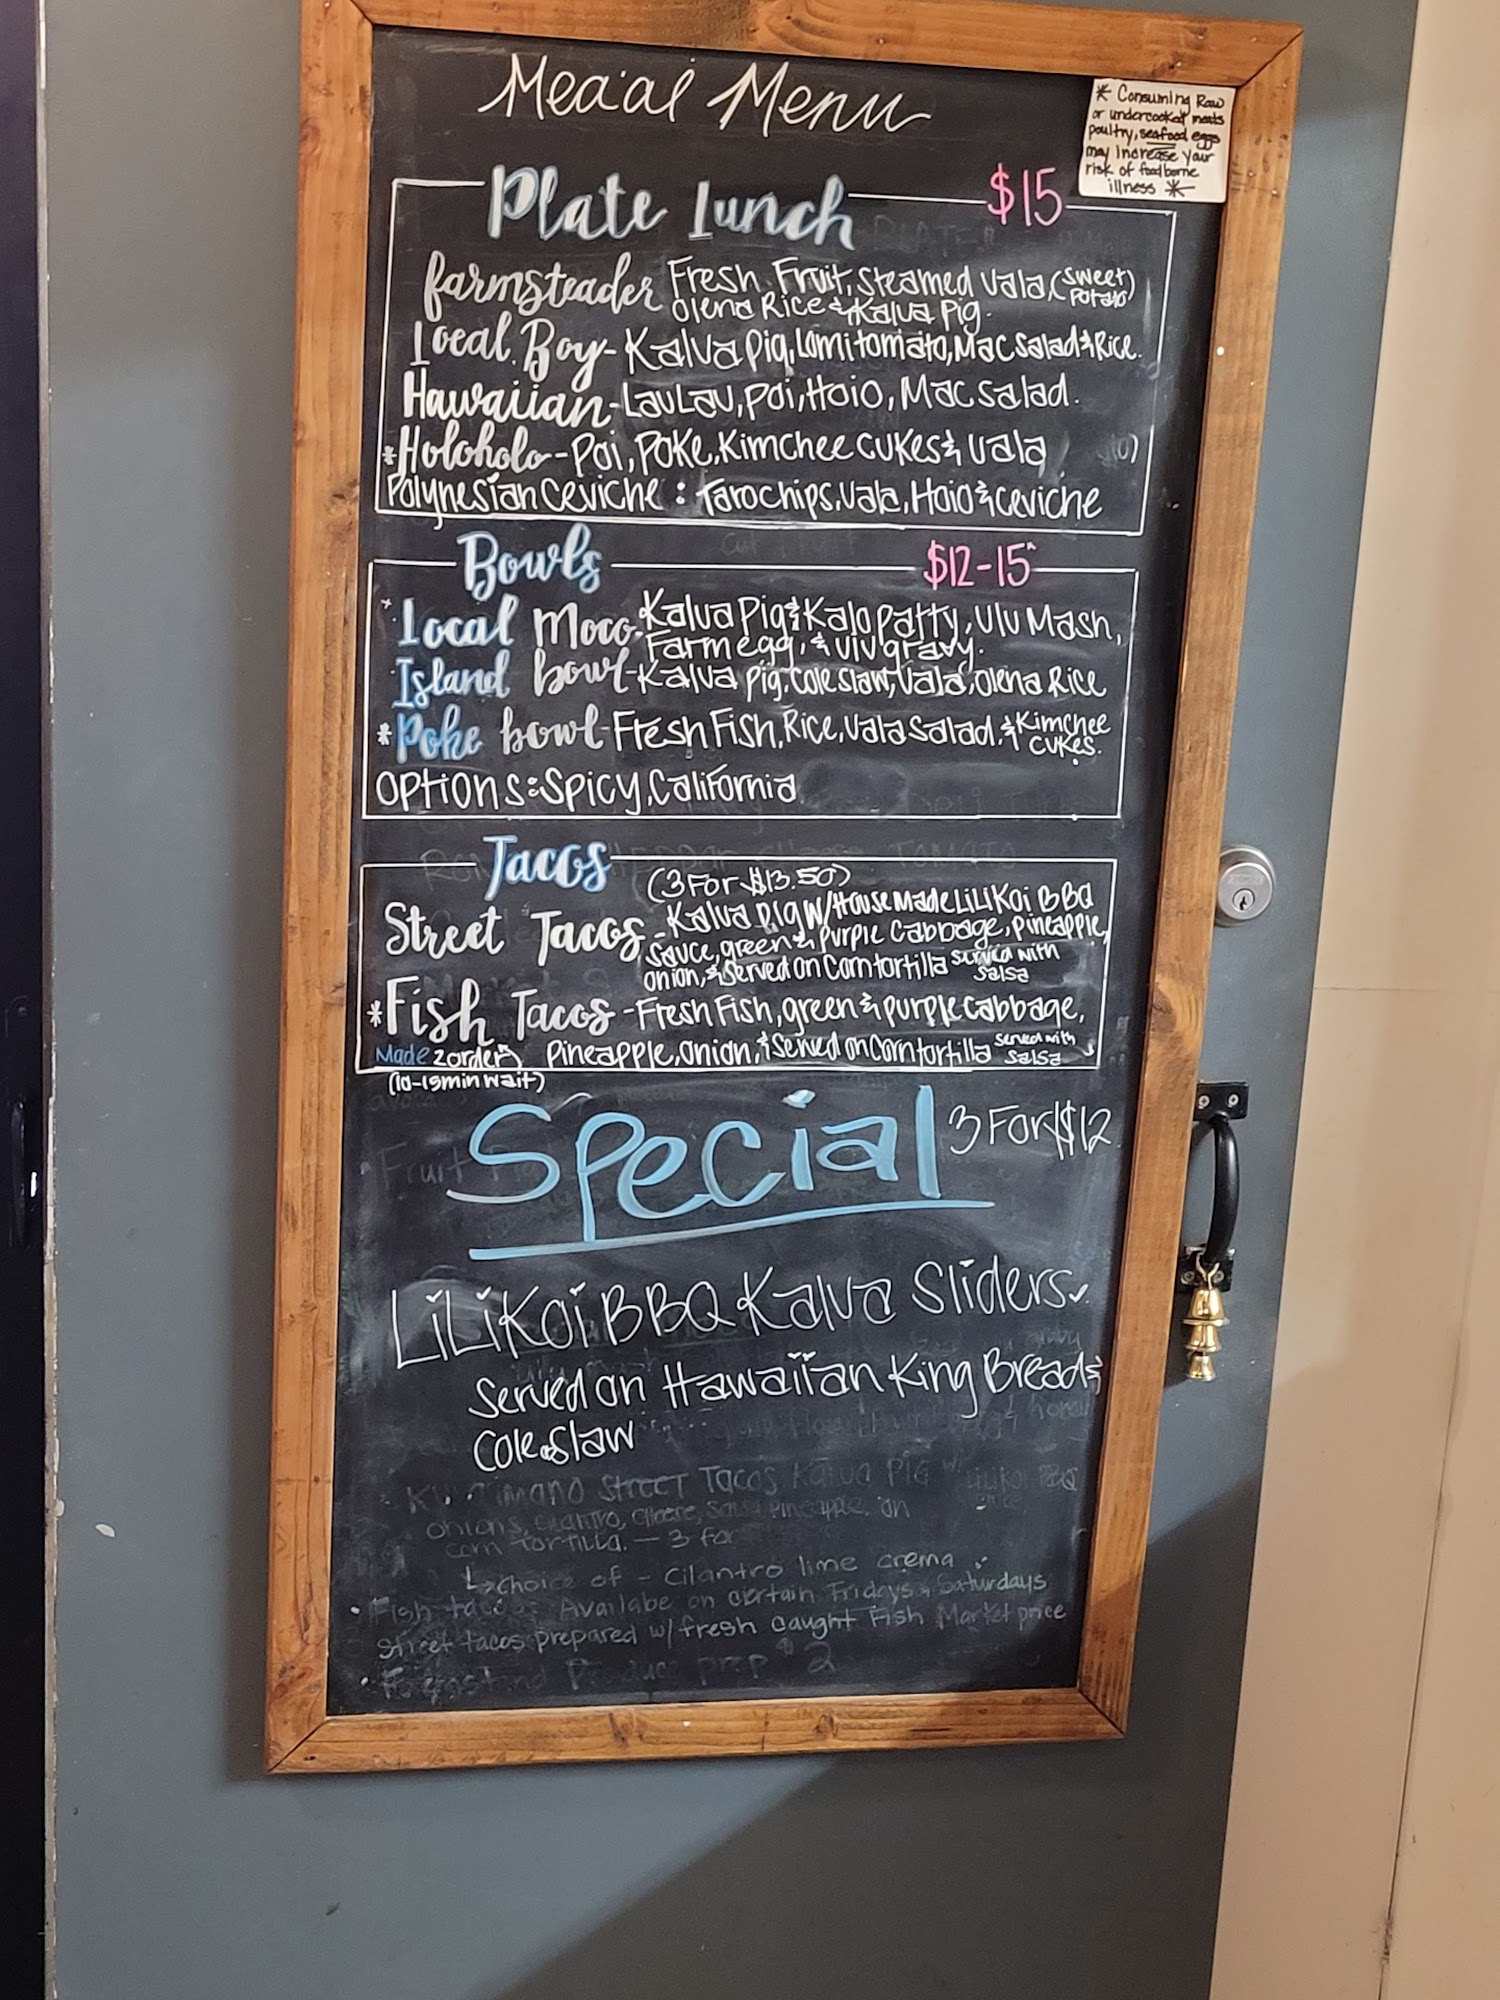 Mea'ai Menu
* Consuming Raw
or undercooked meats
poultry, seafood, eggs
may increase your
risk of foodborne
illness *
Plate Lunch $15
farmsteader Fresh Fruit, Steamed Uala, (sweet potato)
Olena Rice & Kalua Pig.
Local Boy - Kalua Pig, Lomi tomato, Mac Salad & Rice.
Hawaiian - LauLau, Poi, Hoio, Mac salad.
*Holoholo - Poi, Poke, Kimchee Cukes & Uala
Polynesian Ceviche: Tarochips, Uala, Hoio & Ceviche
Bowls $12-15
*Local Moco - Kalua Pig & Kalo patty, Ulu Mash,
Farm egg, & ulu gravy.
Island bowl - Kalua pig, Cole slaw, Uala, Olena Rice
*Poke bowl - Fresh Fish, Rice, Uala Salad, & Kimchee Cukes.
Options: Spicy, California
Tacos
(3 For $13.50)
Street Tacos - Kalua Pig W/ House Made LiLiKoi BBQ
Sauce, green & purple Cabbage, Pineapple,
Onion, & Served on Corn tortilla served with salsa
*Fish Tacos - Fresh Fish, green & purple Cabbage,
Made 2 order Pineapple, Onion, & Served on Corn tortilla served with salsa
(10-15min wait)
Special 3 For $12
LiLiKoi BBQ Kalua Sliders
Served on Hawaiian King Bread &
Cole Slaw
Street Tacos Kalua Pig w/ Lilikoi BBQ
onions, cilantro, cheese, salsa, pineapple, on
corn tortilla. — 3 for
choice of - Cilantro lime crema
• Fish tacos - Availabe on certain Fridays & Saturdays
Street tacos prepared w/ fresh caught Fish Market price